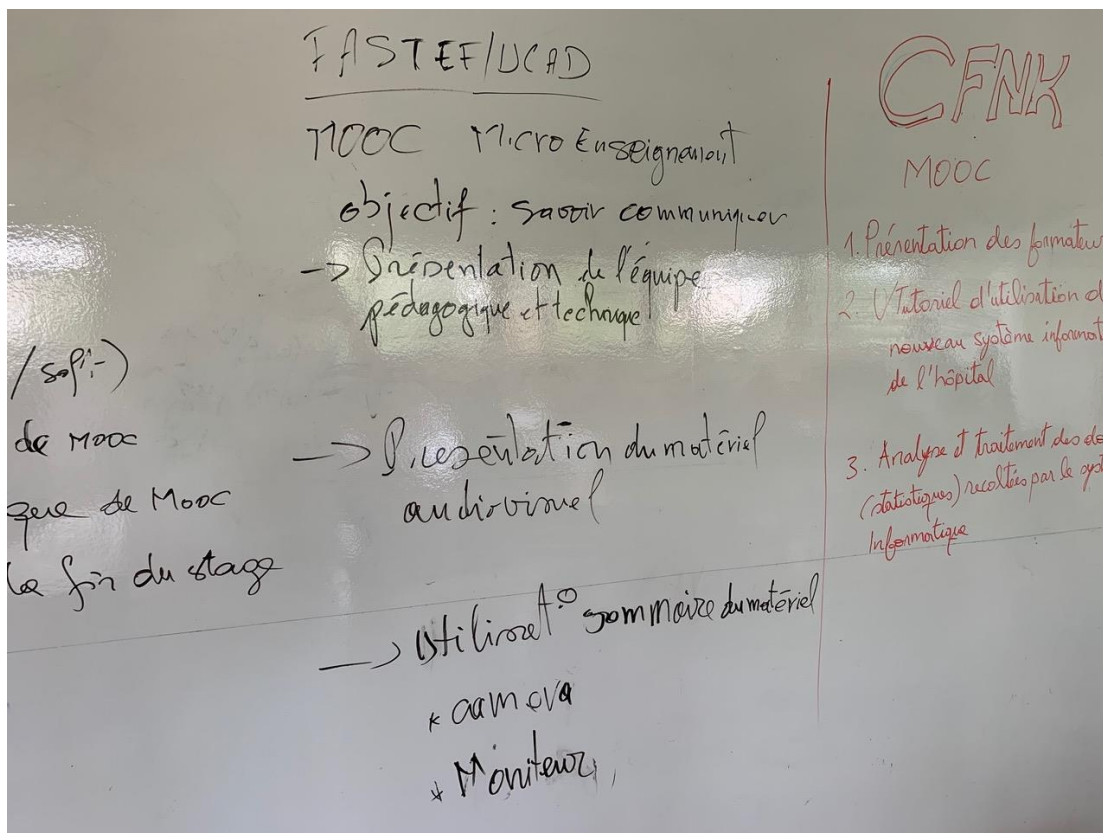 / sofi:-)
de MOOC
que de MOOC
la fin du stage
FASTEF/UCAD
MOOC Micro Enseignement
objectif : savoir communiquer
-> Présentation de l'équipe
pédagogique et technique
-> Présentation du matériel
audiovisuel
-> Utilisat° sommaire du matériel
* camera
* Moniteur
CFNK
MOOC
1. Présentation des formateu
2. Tutoriel d'utilisation d
nouveau système informat
de l'hôpital
3. Analyse et traitement des do
(statistiques) recoltées par le syst
Informatique